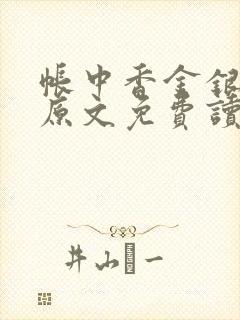 帳中香金銀
原文免費讀
井山一